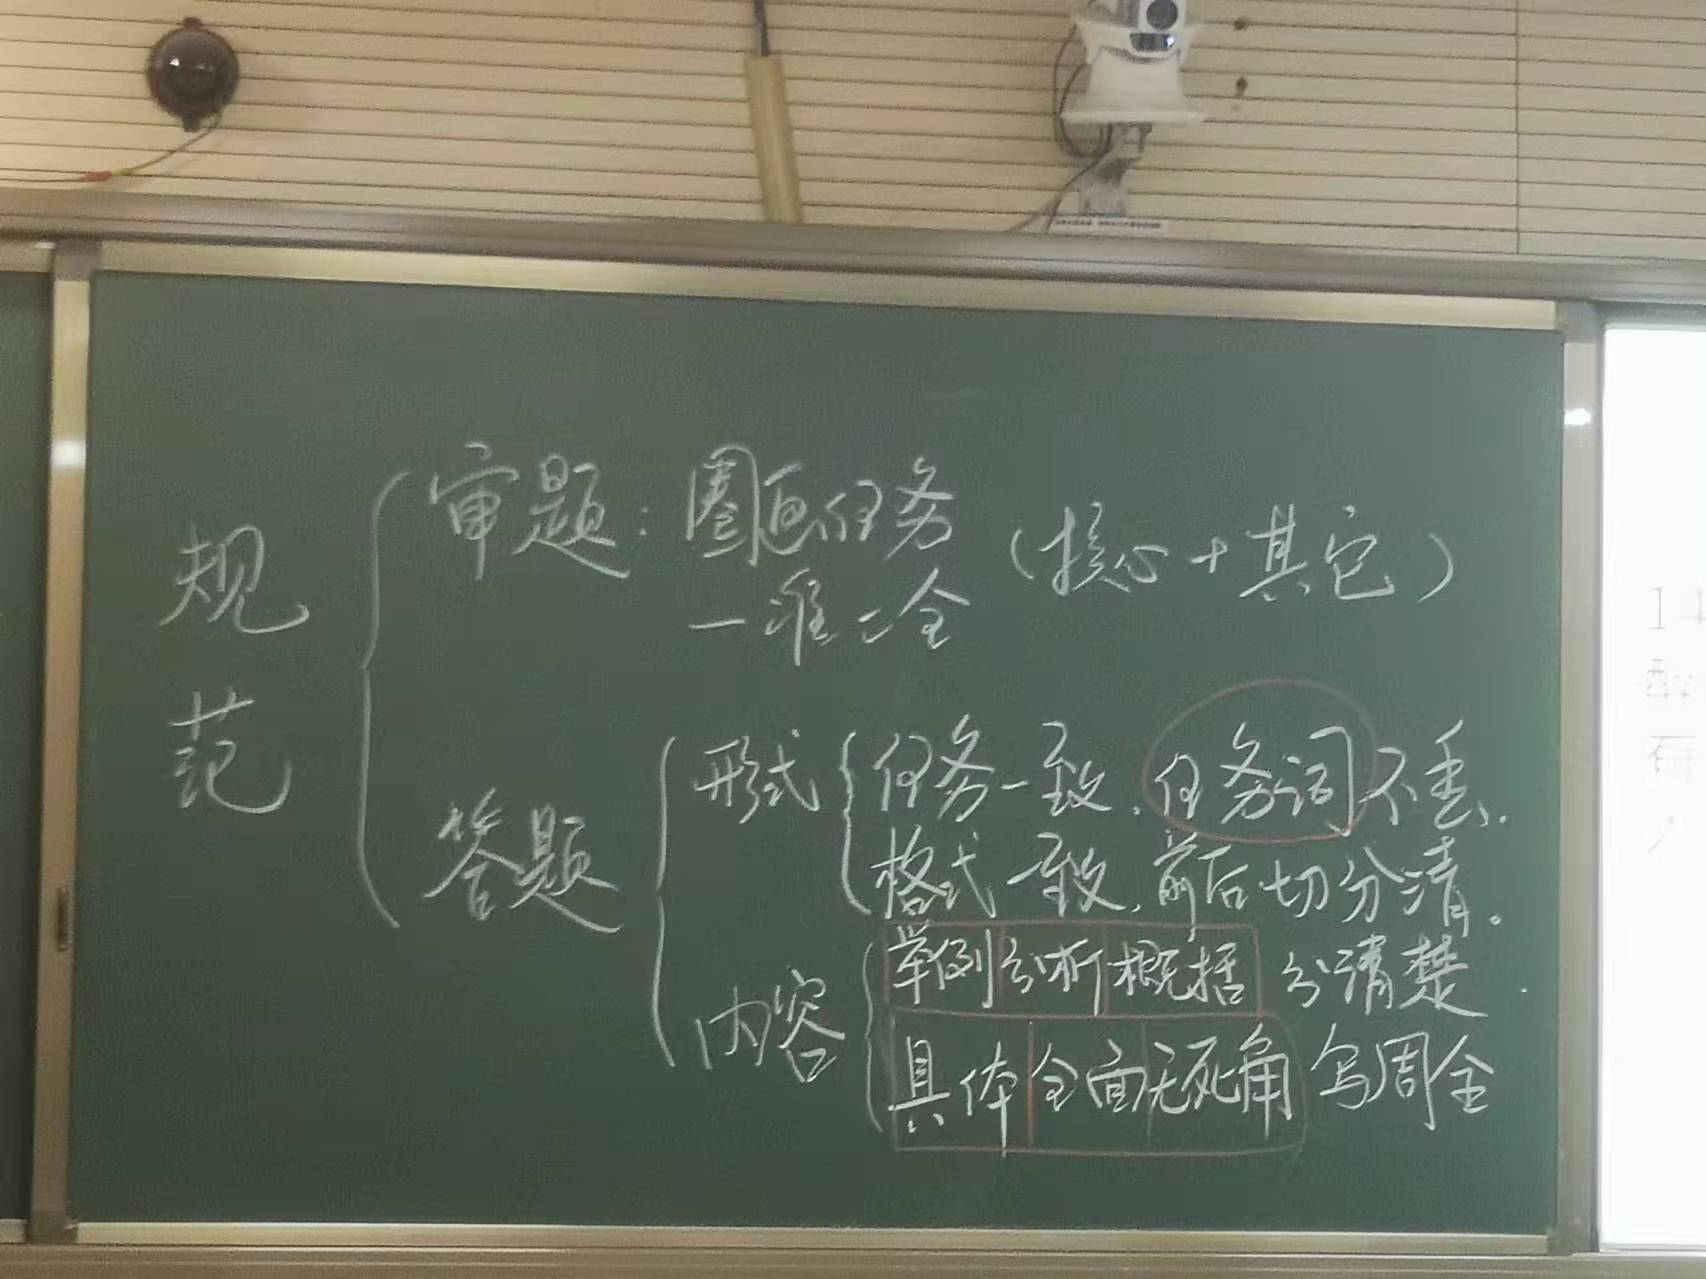 规范
审题：圈画任务
一准二全
（核心+其它）
答题
形式
任务一致，任务词不丢，
格式一致，前后切分清。
内容
举例分析概括 分清楚
具体全面无死角 写周全